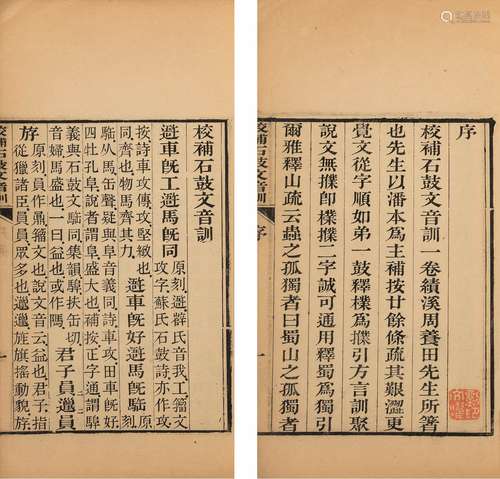 序
校補石鼓文音訓一卷績溪周蘉田先生所箸
也先生以潘本為主補按廿餘條疏其艱澀更
覺文從字順如弟一鼓釋樸為撲引方言訓聚
說文無撲卽樸撲二字誠可通用釋蜀為獨引
爾雅釋山疏云蟲之孤獨者曰蜀山之孤獨者
校補石鼓文音訓 序 一
校補石鼓文音訓
避車旣工避馬旣同
原刻避辭氏音我工籀文
攻字蘇氏石鼓詩亦作攻
按詩車攻傳攻堅緻也
同齊也物馬齊其力
避車旣好避馬旣
原
从馬缶聲疑與阜音義同詩車攻田車旣好
四牡孔阜說者謂阜盛大也補按正字通謂
義與石鼓文同集韻扶缶切
音婦馬盛也一曰益也或作
君子員邋員
斿
原刻員作鼎籀文也說文音云益也君子指
從獵諸臣員員眾多也邋邋旌旗搖動貌斿
校補石鼓文音訓 一